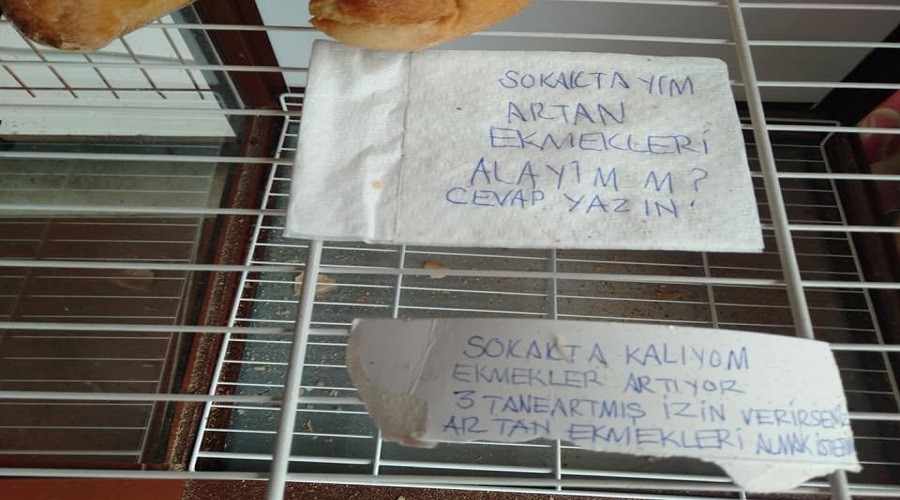 SOKAKTAYIM
ARTAN
EKMEKLERİ
ALAYIM M?
CEVAP YAZIN.
SOKAKTA KALIYOM
EKMEKLER ARTIYOR
3 TANE ARTMIŞ İZİN VERİRSENE
ARTAN EKMEKLERİ ALMAK